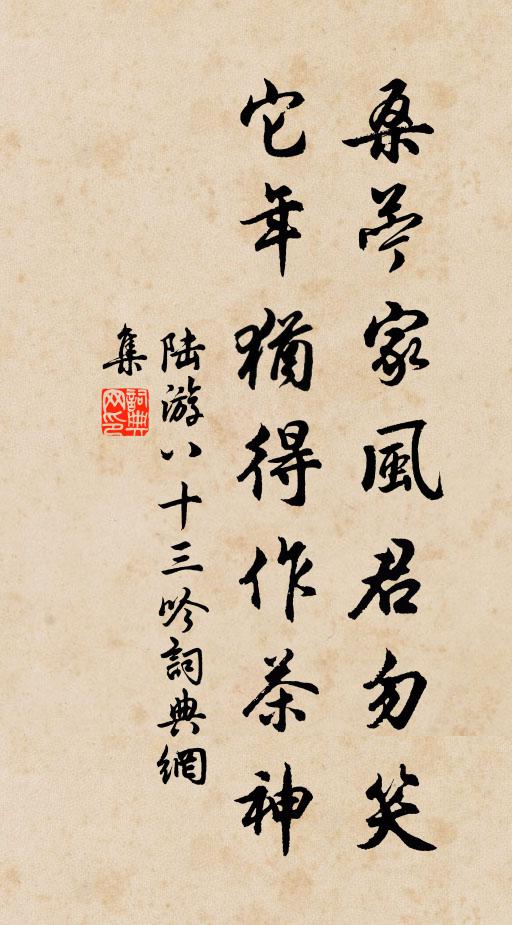 桑苧家風君勿笑
它年猶得作茶神
陸游八十三吟詞典網
集
詞典
网印